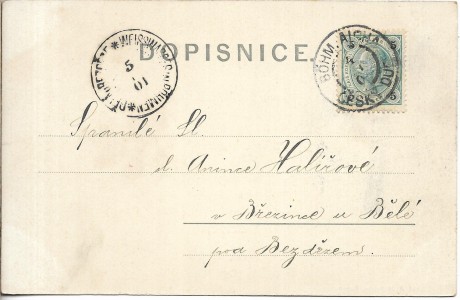 DOPISNICE.
WEISSWASSER IN BÖHMEN
5
01
BÖHM. AICHA
ČESK. DUB
Spanilé Sl.
sl. Anince Halířové
v Březince u Bělé
pod Bezdězem.